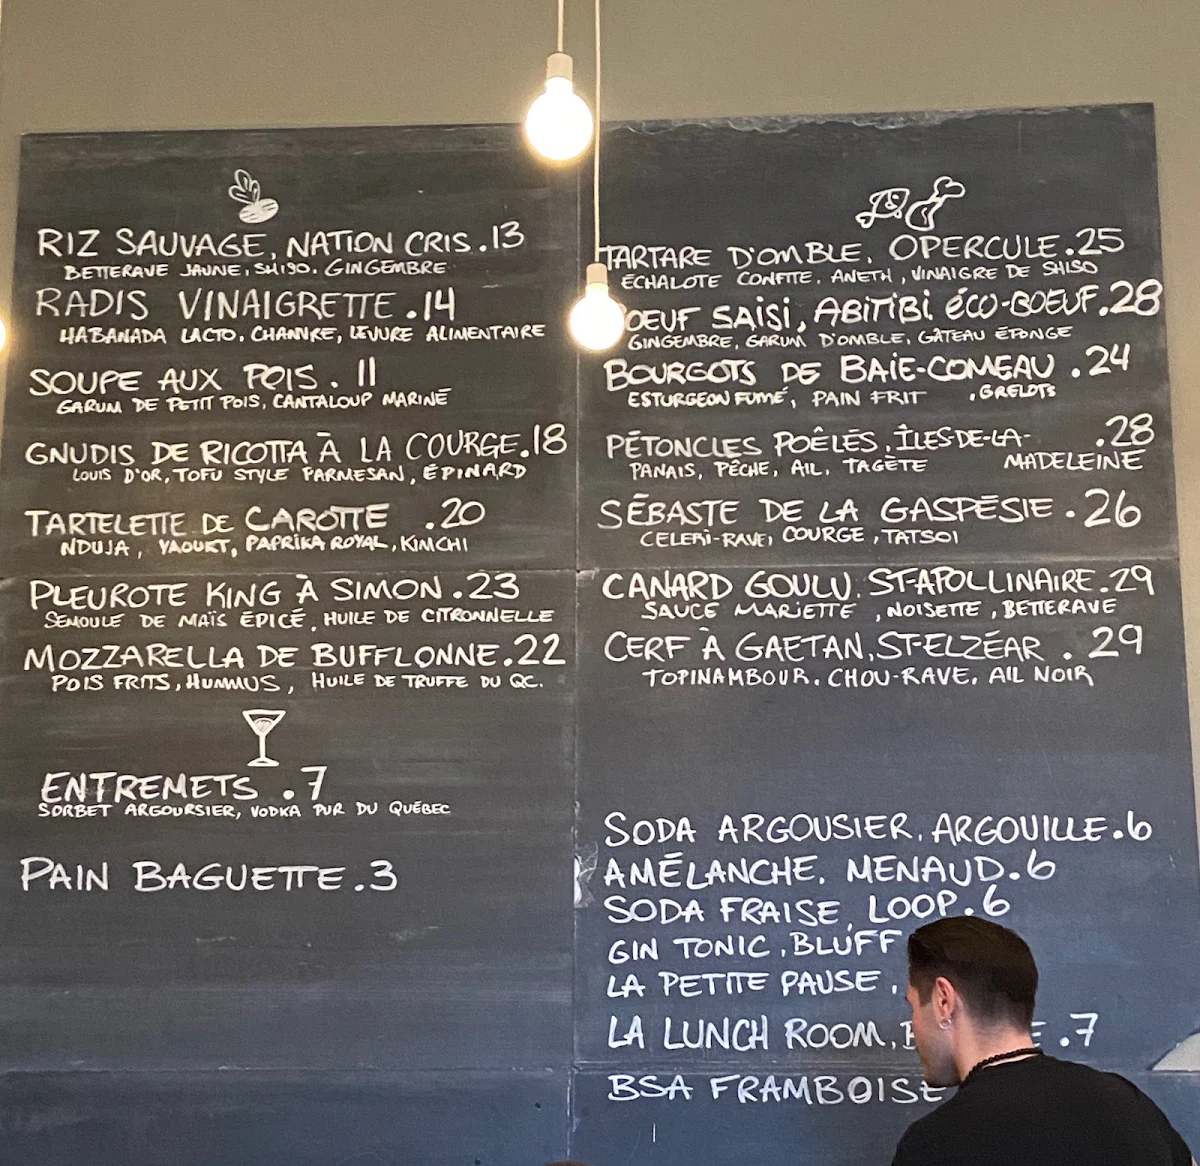 RIZ SAUVAGE, NATION CRIS .13
BETTERAVE JAUNE, SHISO, GINGEMBRE
RADIS VINAIGRETTE .14
HABANADA LACTO, CHANVRE, LEVURE ALIMENTAIRE
SOUPE AUX POIS . 11
GARUM DE PETIT POIS, CANTALOUP MARINÉ
GNUDIS DE RICOTTA À LA COURGE .18
LOUIS D'OR, TOFU STYLE PARMESAN, ÉPINARD
TARTELETTE DE CAROTTE .20
NDUJA, YAOURT, PAPRIKA ROYAL, KIMCHI
PLEUROTE KING À SIMON .23
SEMOULE DE MAÏS ÉPICÉ, HUILE DE CITRONNELLE
MOZZARELLA DE BUFFLONNE .22
POIS FRITS, HUMMUS, HUILE DE TRUFFE DU QC.
ENTREMETS .7
SORBET ARGOURSIER, VODKA PUR DU QUÉBEC
PAIN BAGUETTE .3
TARTARE D'OMBLE, OPERCULE .25
ÉCHALOTE CONFITE, ANETH, VINAIGRE DE SHISO
BOEUF SAISI, ABITIBI ÉCO-BOEUF .28
GINGEMBRE, GARUM D'OMBLE, GÂTEAU ÉPONGE
BOURGOTS DE BAIE-COMEAU .24
ESTURGEON FUMÉ, PAIN FRIT , GRELOTS
PÉTONCLES POÊLÉS, ÎLES-DE-LA- .28
PANAIS, PÊCHE, AIL, TAGÈTE MADELEINE
SÉBASTE DE LA GASPÉSIE .26
CELERI-RAVE, COURGE, TATSOI
CANARD GOULU, ST-APOLLINAIRE .29
SAUCE MARIETTE , NOISETTE , BETTERAVE
CERF À GAETAN, ST-ELZÉAR . 29
TOPINAMBOUR, CHOU-RAVE, AIL NOIR
SODA ARGOUSIER, ARGOUILLE .6
AMÉLANCHE, MENAUD .6
SODA FRAISE, LOOP .6
GIN TONIC, BLUFF
LA PETITE PAUSE ,
LA LUNCH ROOM, .7
BSA FRAMBOISE